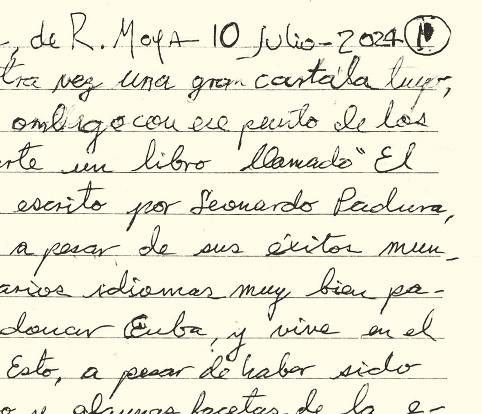 de R. Moya - 10 Julio - 2024
tra vez una gran carta la tuya,
ombligo con ese punto de los
rte un libro llamado "El
escrito por Leonardo Padura,
a pesar de sus éxitos mun-
arios idiomas muy bien pa-
donar Cuba, y vive en el
Esto, a pesar de haber sido
o y algunas facetas de la e-